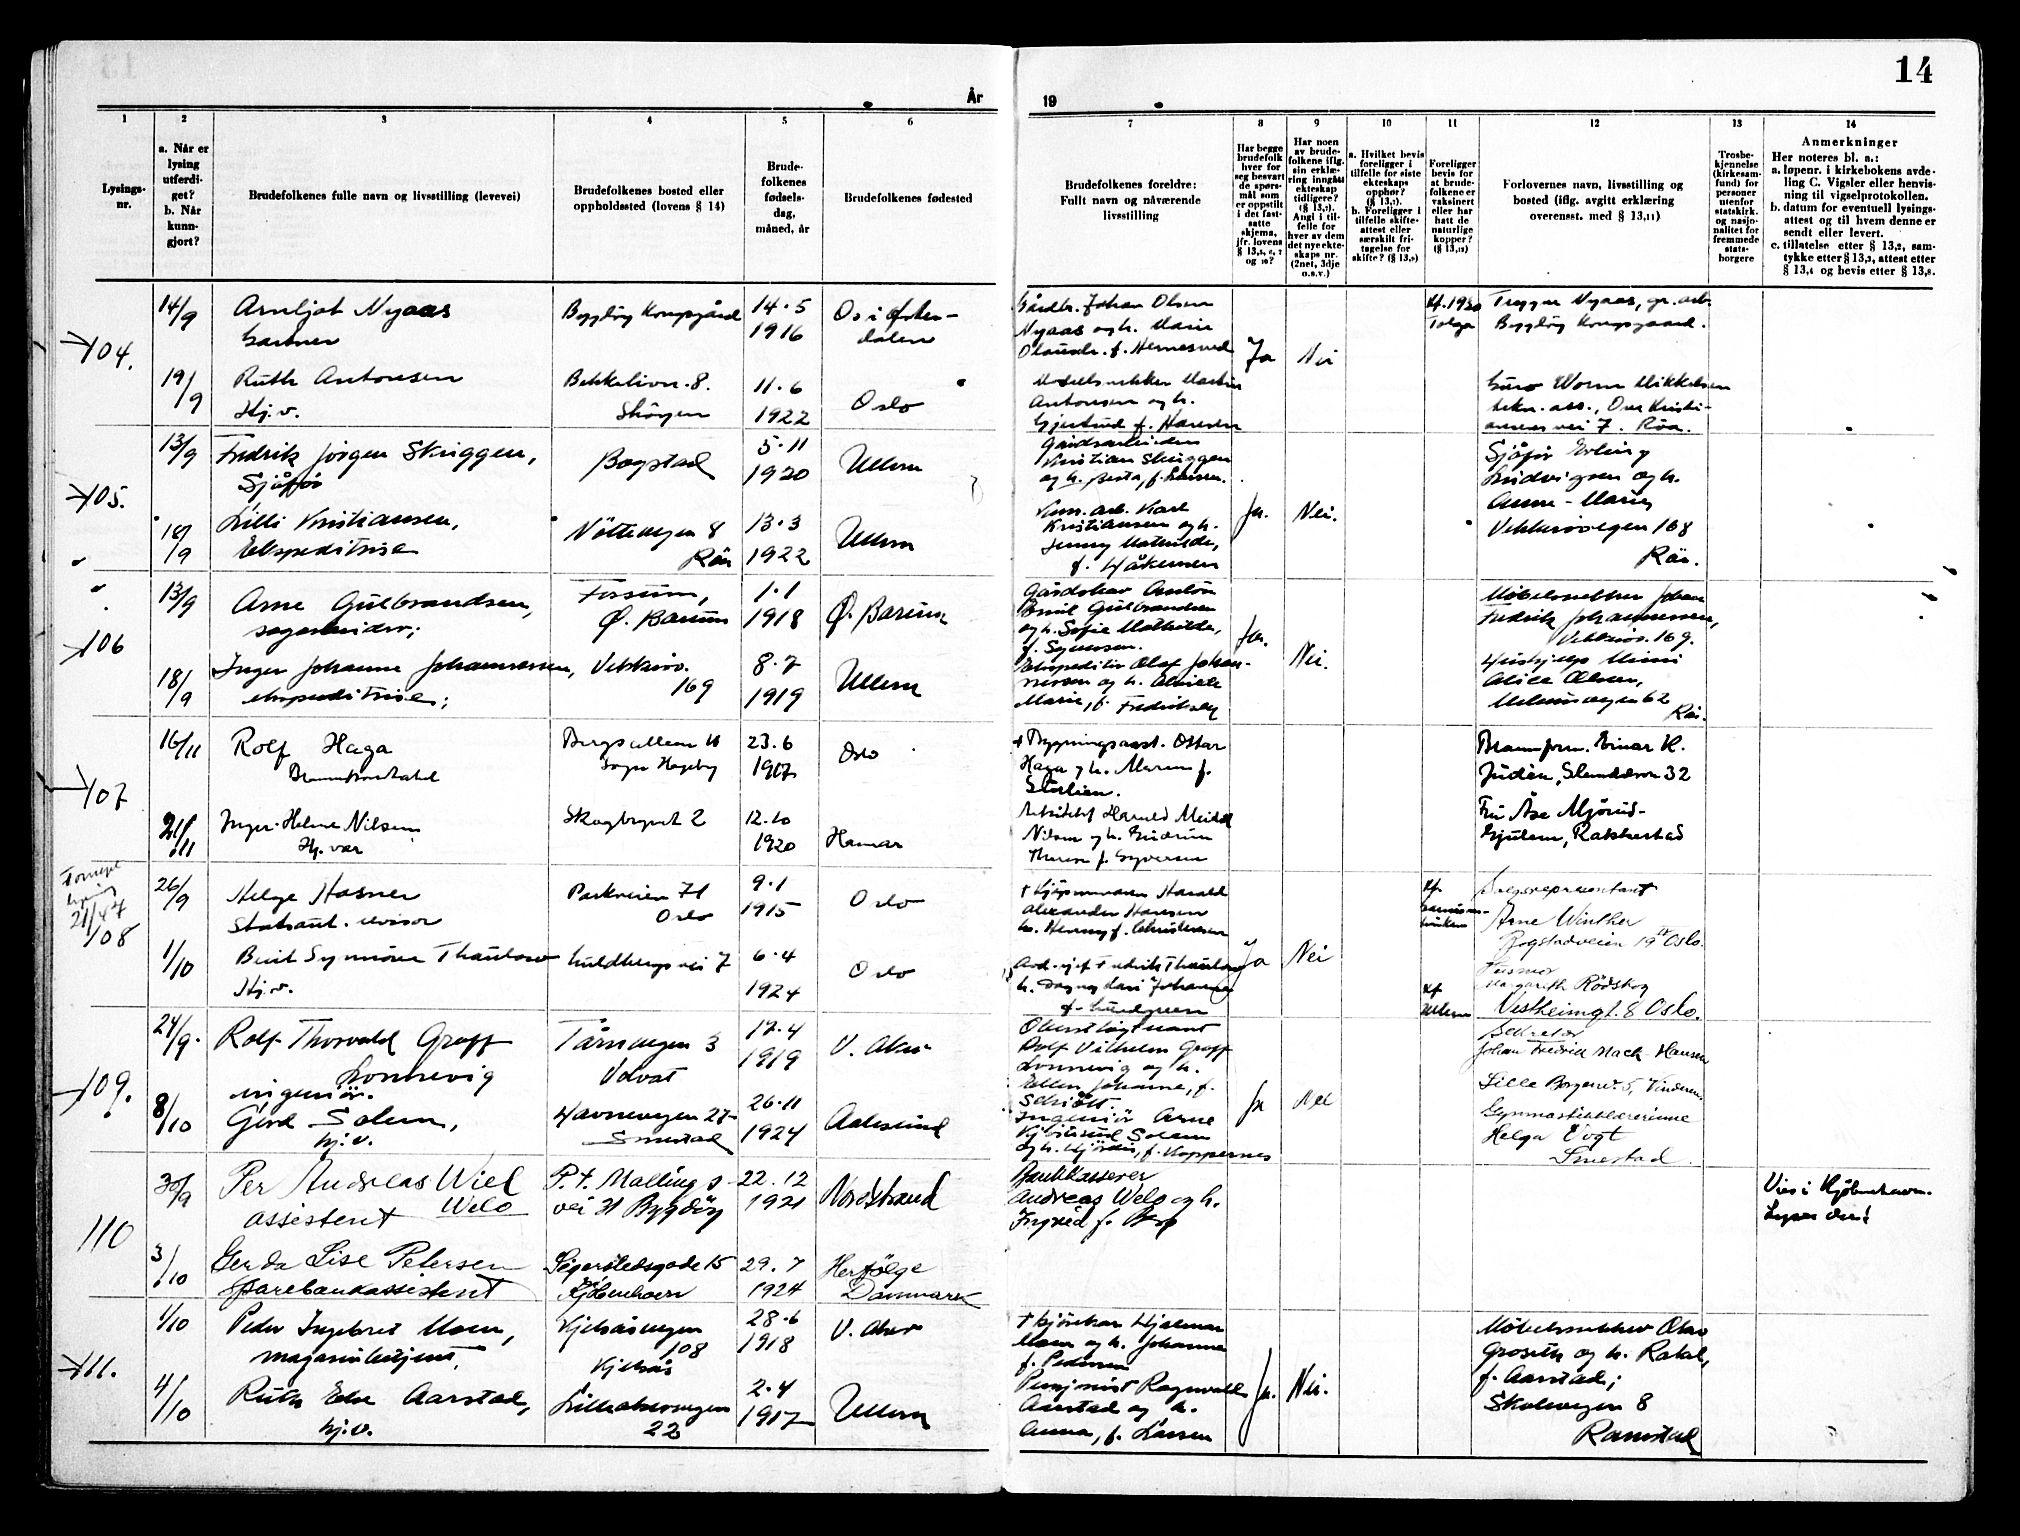 14
År
19
1
2
3
4
5
6
7
8
9
10
11
12
13
14
Lysings-
nr.
a. Når er
lysing
utferdi-
get?
b. Når
kunn-
gjort?
Brudefolkenes fulle navn og livsstilling (levevei)
Brudefolkenes bosted eller
oppholdssted (lovens § 14)
Brude-
folkenes
fødsels-
dag,
måned, år
Brudefolkenes fødested
Brudefolkenes foreldre:
Fullt navn og nåværende
livsstilling
Har begge
brudefolk
hver for
seg besvart
de spørs-
mål som
er oppstilt
i det fast-
satte
skjema,
jfr. lovens
og 10?
Har noen
av brude-
folkene iflg.
sin erklæ-
ring inngått
ekteskap
tidligere?
Angi i til-
felle for
hver av dem
det nye ekte-
skaps nr.
(2net, 3dje
o.s.v.)
a. Hvilket bevis
foreligger i
tilfelle for siste
ekteskaps
opphør?
b. Foreligger i
tilfelle skifte-
attest eller
særskilt fri-
tagelse for
skifte?
Foreligger
bevis for
at brude-
folkene er
vaksinert
eller har
hatt de
naturlige
kopper?
Forlovernes navn, livsstilling og
bosted (iflg. avgitt erklæring
overensst. med § 13,11)
Trosbe-
kjennelse
(kirkesam-
fund) for
personer
utenfor
statskirk.
og nasjo-
nalitet for
fremmede
stats-
borgere
Anmerkninger
Her noteres bl. a.:
a. løpenr. i kirkebokens avde-
ling C. Vigsler eller henvis-
ning til vigselprotokollen.
b. datum for eventuell lysings-
attest og til hvem denne er
sendt eller levert.
c. tillatelse etter § 13,2, sam-
tykke etter § 13,3, attest etter
§ 13,4 og bevis etter § 13,8.
104.
14/9
Arnljot Nyaas
Gartner
Bygdöy Kongsgård
14.5
1916
Os i Øster-
dalen
Gårdbr. Johan Olsen
Nyaas og h. Marie
Ja
Nei
Kf. 1930
Tolga
Tryggve Nyaas, gr. arb.
Bygdöy Kongsgaard.
19/9
Ruth Antonsen
Hj.v.
Bekkelivn. 8.
Skögen
11.6
1922
Oslo
Antonsen og h.
Gjertrud f. Hansen
Guro Worm Mikkelsen
tekn. ass., Ove Kristi-
ansens vei 7. Röa.
105.
13/9
Fredrik Jörgen Skuggen,
Sjåför
Bogstad
5.11
1920
Ullern
Gårdsarbeider
Kristian Skuggen
og h. Berta, f. Larsen.
Ja.
Nei.
Sjåför Erling
Ludvigsen og h.
Anne-Marie,
Vekkerövegen 168
Röa.
18/9
Lilli Kristiansen,
Ekspeditrise
Nöttevegen 8
Röa
13.3
1922
Ullern
Kom. arb. Karl
Kristiansen og h.
Jenny Mathilde,
f. Håkensen
106
13/9
Arne Gulbrandsen,
sagarbeider;
Fossum,
Ø. Bærum
1.1
1918
Ø. Bærum
Gårdskar Anton
Emil Gulbrandsen
og h. Sofie Mathilde,
f. Syversen.
Ja.
Nei.
Möbelsnekker Johan
Fredrik Johannessen,
Vekkerö. 169.
18/9
Inger Johanne Johannessen,
ekspeditrise;
Vekkerö.
169
8.7
1919
Ullern
Ekspeditör Olaf Johan-
nessen og h.
Marie, f. Fredriksen
Hushjelp Mimi
Alise Olsen,
62
Röa.
107
16/11
Rolf Haga
Brannkonstabel
Bergsalleen 16
Sogn Hageby
23.6
1917
Oslo
† Bygningsarb. Ottar
Haga og h. Maren f.
Brannform. Einar K.
Juden, Slemdalsvn 32
21/11
Inger-Helene Nilsen
Hj. vær
Skogbrynet 2
12.10
1920
Hamar
Arkitekt Harald Meidel
Nilsen og h. Gudrun
Therese f. Syversen
Fru Åse Mjörud-
Gjulem, Rakkestad
Fornyet
lysing
21/4 47
108
26/9
Helge Hasner
Statsaut. revisor
Parkveien 71
Oslo
9.1
1915
Oslo
Alexander Hansen
h. Henny f. Christensen
Ja
Nei
Kf.
Salgsrepresentant
Arne Winther
Bogstadveien 19 IV Oslo.
1/10
Berit Synnöve Thaulow
Hj.v.
Guldbergs vei 7
6.4
1924
Oslo
Avd. sjef Fredrik Thaulow
h. Dagny Lari Johanne
f. Lundgreen
Kf.
Ullern
Husmor
Margareth Rödskog
Vestheimgt. 8 Oslo.
109.
24/9.
Rolf Thorvald Graff
Lonnevig
ingeniör.
Tårnvegen 3
Volvat
17.4
1919
V. Aker
Oberstlöytnant
Rolf Vilhelm Graff
Lonnevig og h.
Ellen Johanne, f.
Schiött
Ja
Nei
Sekretær
Johan Fredrik Mack Hansen
Lille Borgenv. 5, Vinderen
8/10
Gerd Solem,
hj.v.
Havnevegen 27
Smestad
26.11
1924
Aalesund
Ingeniör Arne
Kjölsrud Solem
og h. Hjördis, f. Koppernes
Gymnastikklærerinne
Helga Vogt
Smestad.
110
30/9
Per Andreas Wiel
Welo
assistent
P.T. Mallings
vei 31 Bygdöy
22.12
1921
Nordstrand
Bankkasserer
Andreas Welo og h.
Ingrid f. Berg
Vies i Kjöbenhavn.
Lyses der!
3/10
Gerda Lise Petersen
Sparebankassistent
Sigerstedsgade 15
Kjöbenhavn
29.7
1924
Herfölge
Danmark
111.
4/10
Peder Ingebret Moen,
magasinbetjent,
Kjelsåsvegen
108
Kjelsås
28.6
1918
V. Aker
† Kjörekar Hjalmar
Moen og h. Johanne
f. Pedersen
Ja.
Nei.
Möbelsnekker Olav
Groseth og h. Rakel,
f. Aarstad;
Skolevegen 8
Ramstad
4/10
Ruth Else Aarstad,
hj.v.
Lilleakervegen
22
2.4
1917
Ullern
Pensjonist Ragnvald
Aarstad og h.
Anna, f. Larsen